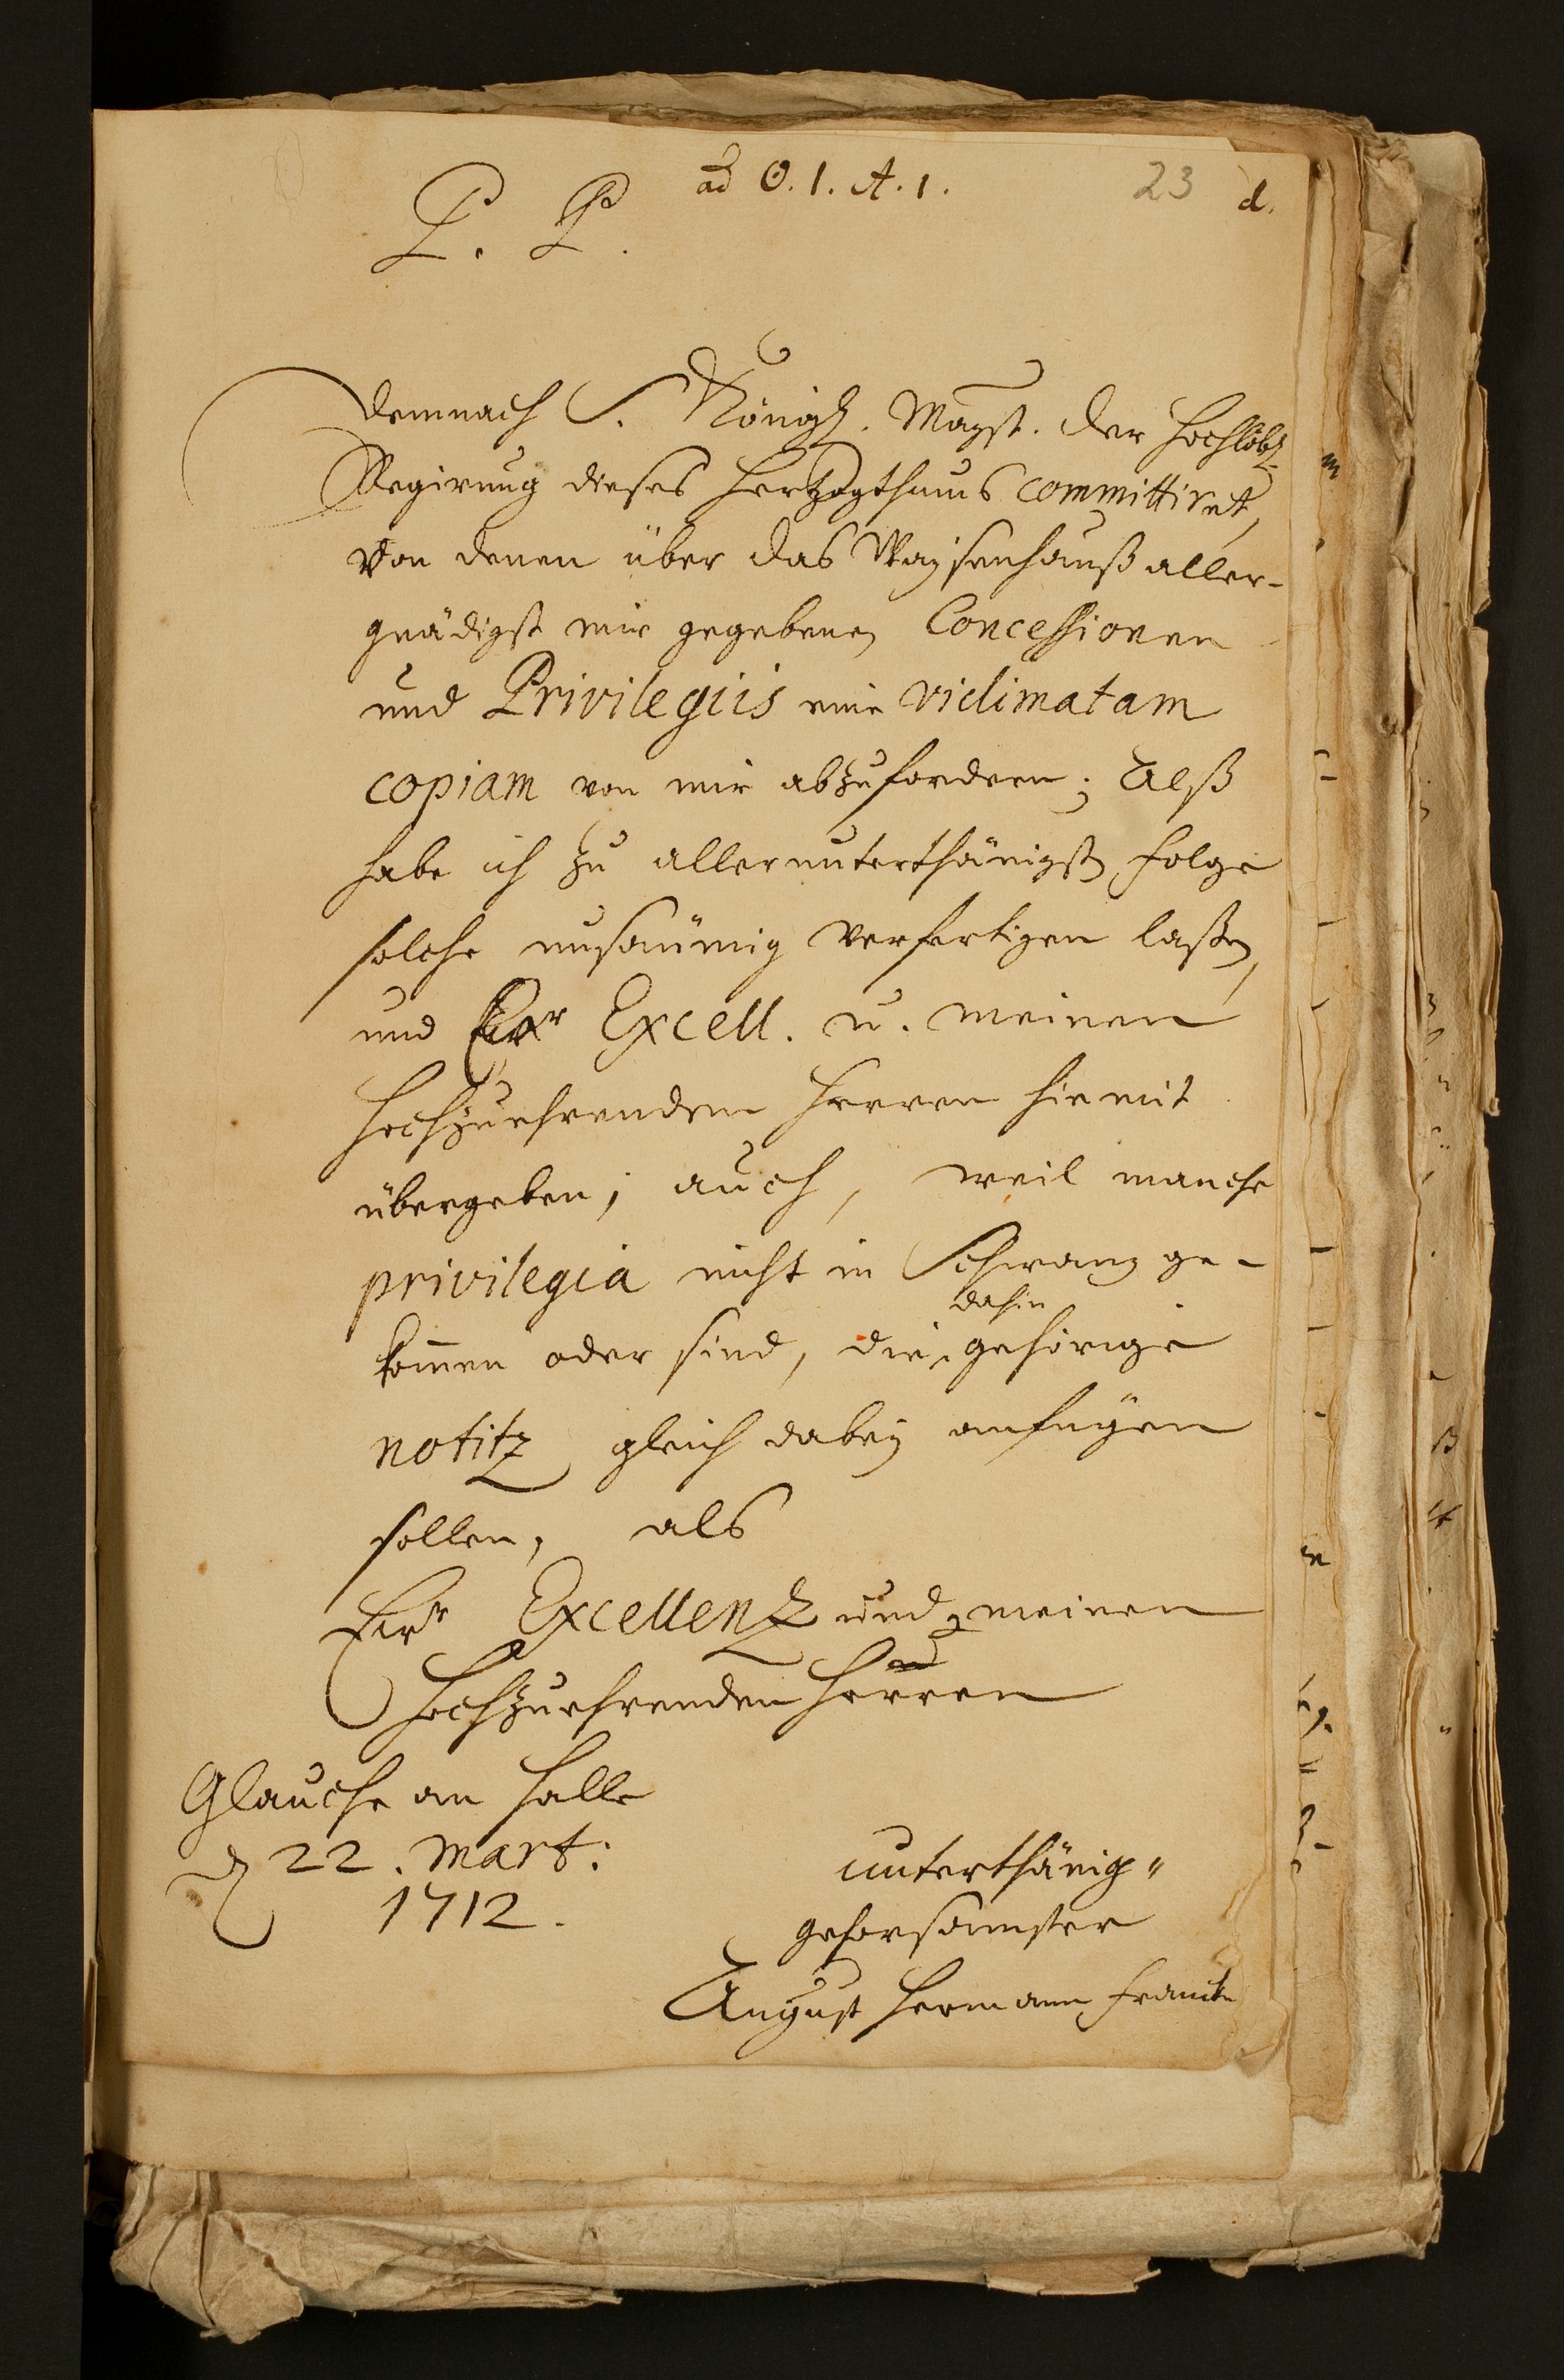 ad O. 1. A. 1.
23 d.
P. P.
Demnach S. Königl. Mayst. der hochlöbl.
Regirung dieses Hertzogthums committiret,
von denen über das Waysenhauß aller-
gnädigst mir gegebenen Concessionen
und Privilegiis eine vidimatam
copiam von mir abzufordern; Alß
habe ich zu allerunterthänigster folge
solche unsäumig verfertigen laßen,
und Ewr Excell. u. meinen
Hochzuehrenden Herren hiemit
übergeben; auch, weil manche
privilegia nicht in Schwang ge-
kom̄en oder sind, die dahin gehörige
notitz gleich dabey anfügen
sollen, als
Ewr Excellentz und meinen
Hochzuehrenden Herren
Glaucha an Halle
d 22. Mart:
1712.
unterthänig"
gehorsamster
August Hermann Francke